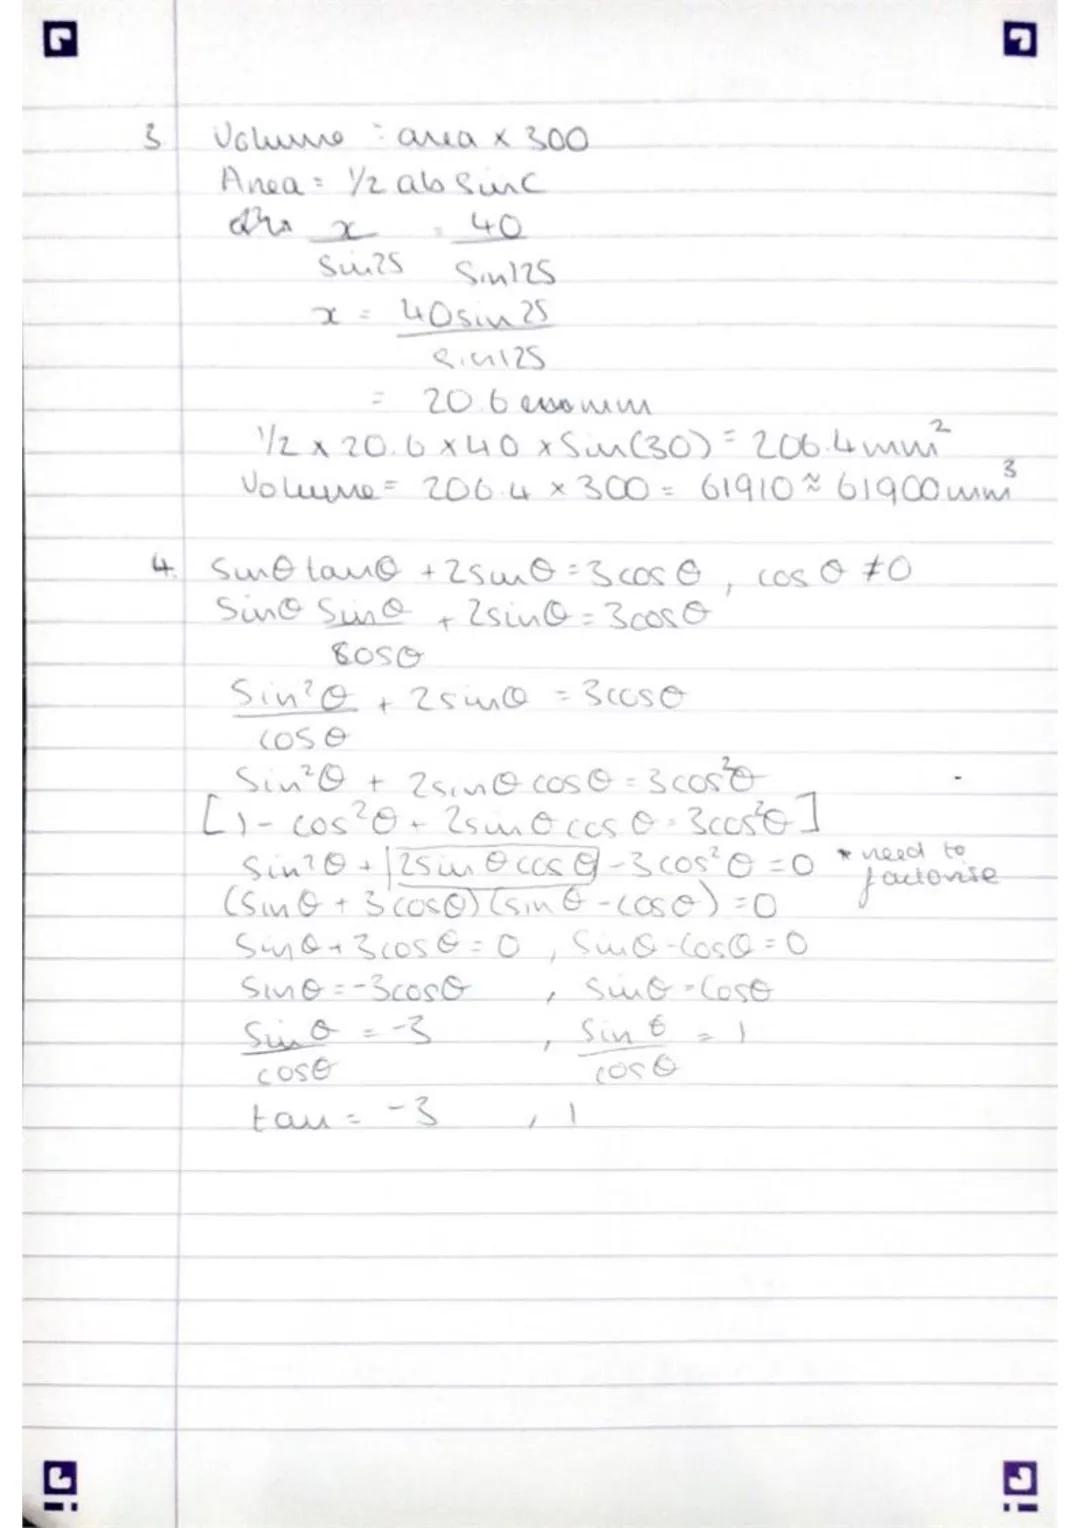 3 Volume = area x 300
Area = 1/2 ab Sin C
x = 40
Sin25 Sin125
x = 40sin25
Sin125
= 20.6 mm
1/2 x 20.6 x 40 x Sin(30) = 206.4mm²
Volume = 206.4 x 300 = 61910 ≈ 61900mm³
4. Sinθ tanθ + 2sinθ = 3cosθ, cosθ ≠ 0
Sinθ Sinθ + 2sinθ = 3cosθ
cosθ
Sin²θ + 2sinθ = 3cosθ
cosθ
Sin²θ + 2sinθcosθ = 3cos²θ
[1 - cos²θ + 2sinθcosθ = 3cos²θ]
Sin²θ + 2sinθcosθ - 3cos²θ = 0 * need to factorise
(Sinθ + 3cosθ)(sinθ - cosθ) = 0
Sinθ + 3cosθ = 0, Sinθ - Cosθ = 0
Sinθ = -3cosθ, Sinθ = Cosθ
Sinθ = -3, Sinθ = 1
cosθ cosθ
tan = -3, 1